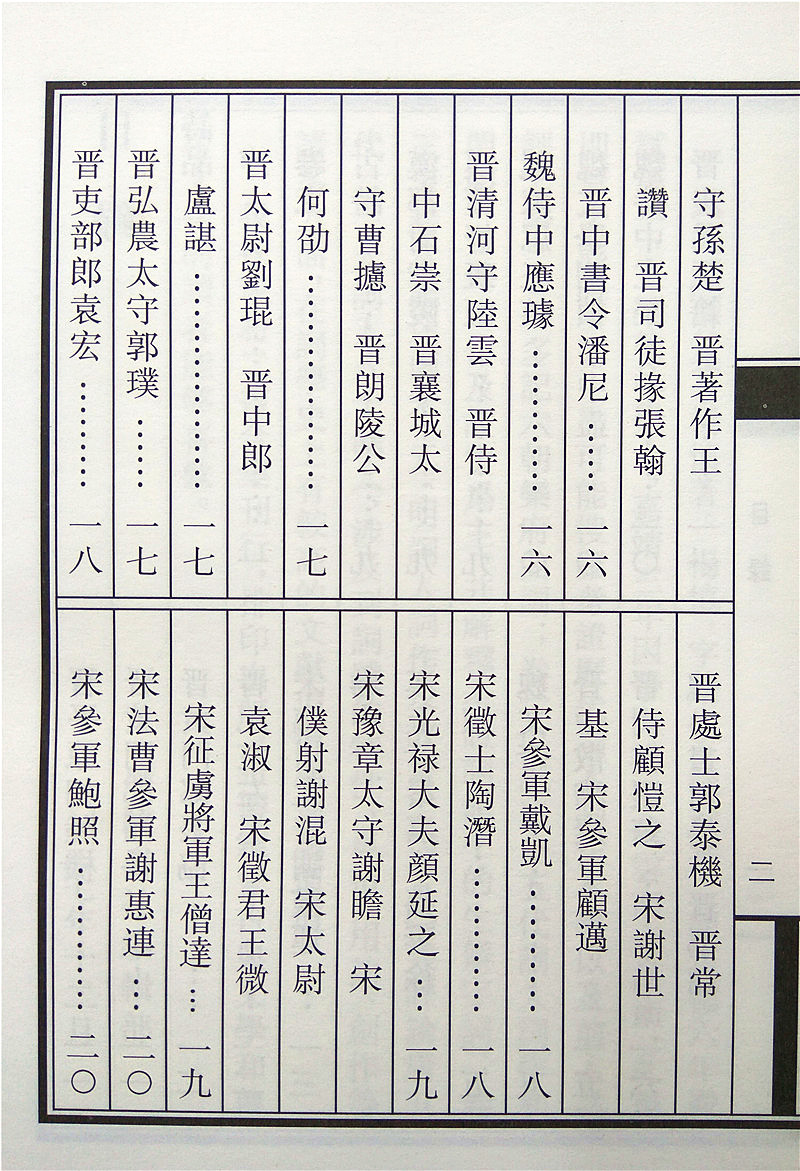 守孫楚　晋著作王
讚　晋司徒掾張翰
晋中書令潘尼……一六
魏侍中應璩…………一六
晋清河守陸雲　晋侍
中石崇　晋襄城太
守曹攄　晋朗陵公
何劭………………一七
晋太尉劉琨　晋中郎
盧諶………………一七
晋弘農太守郭璞……一七
晋吏部郎袁宏………一八
晋處士郭泰機　晋常
侍顧愷之　宋謝世
基　宋參軍顧邁
宋參軍戴凱…………一八
宋徵士陶潛…………一八
宋光禄大夫顔延之…一九
宋豫章太守謝瞻　宋
僕射謝混　宋太尉
袁淑　宋徵君王微
宋征虜將軍王僧達…一九
宋法曹參軍謝惠連…二〇
宋參軍鮑照…………二〇
目錄
二